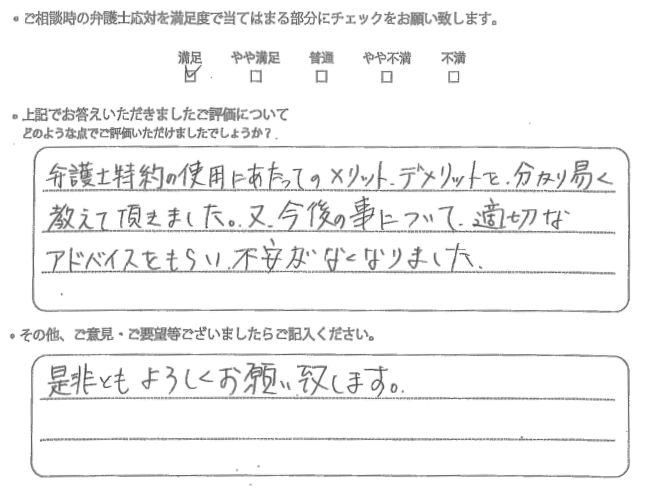 • ご相談時の弁護士応対を満足度で当てはまる部分にチェックをお願い致します。
満足 やや満足 普通 やや不満 不満
☑ □ □ □ □
• 上記でお答えいただきましたご評価について
どのような点でご評価いただけましたでしょうか?
弁護士特約の使用にあたってのメリット、デメリットを、分かり易く
教えて頂きました。又、今後の事について、適切な
アドバイスをもらい、不安がなくなりました。
• その他、ご意見・ご要望等ございましたらご記入ください。
是非ともよろしくお願い致します。